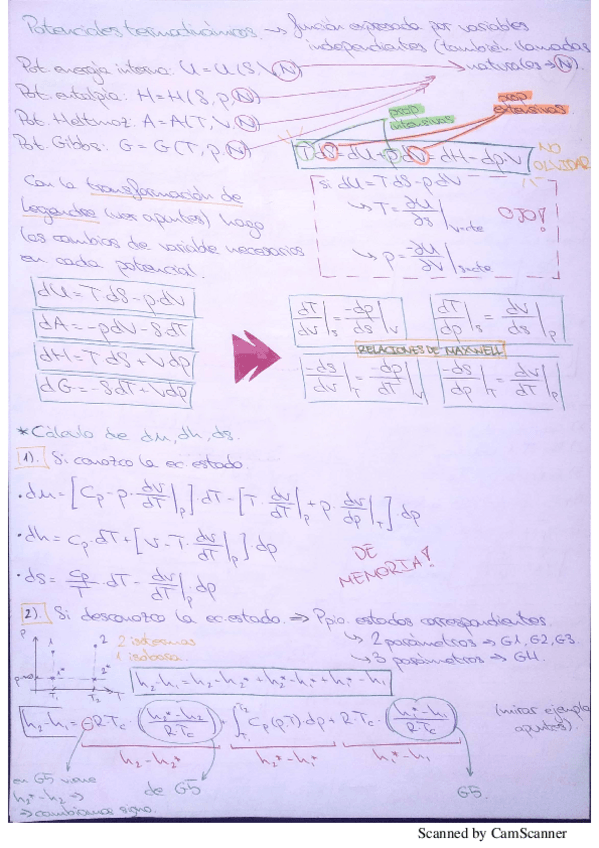 Potenciales termodinámicos → función expresada por variables
independientes (también llamadas
naturales → N).
Pot. energía interna: U = U(S, V, N)
Pot. entalpía: H = H(S, p, N)
Pot. Helmhoz: A = A(T, V, N)
Pot. Gibbs: G = G(T, p, N)
prop intensivas
prop extensivas
TdS = dU + p dV = dH - dp·V
NO OLVIDAR
Con la transformación de
Legendre (ver apuntes) hago
los cambios de variable necesarios
en cada potencial.
si dU = TdS - pdV
→ T = ∂U/∂S |V=cte
→ p = -∂U/∂V |S=cte
OJO!
dU = T·dS - p·dV
dA = -pdV - SdT
dH = T·dS + Vdp
dG = -SdT + Vdp
dT/dV |S = -dp/dS |V
dT/dp |S = dV/dS |p
RELACIONES DE MAXWELL
-dS/dV |T = -dp/dT |V
-dS/dp |T = dV/dT |p
* Cálculo de du, dh, ds.
1). Si conozco la ec. estado.
· du = [Cp - p·dv/dT |p]·dT - [T·dv/dT |p + p·dv/dp |T] dp
· dh = Cp·dT + [v - T·dv/dT |p] dp
· ds = Cp/T·dT - dv/dT |p dp
DE MEMORIA!
2). Si desconozco la ec. estado. ⇒ Ppio. estados correspondientes.
↳ 2 parámetros → G1, G2, G3.
↳ 3 parámetros → G4.
2 isotermas
1 isobara.
P
1
2
1*
2*
T1 T2 T
h2-h1 = h2-h2* + h2*-h1* + h1*-h1
h2-h1 = -R·Tc·(h2*-h2 / R·Tc) + ∫T1 T2 Cp(p,T)·dp + R·Tc·(h1*-h1 / R·Tc)
(mirar ejemplo
apuntes).
h2-h2*
h2*-h1*
h1*-h1
en G5 viene
h2*-h2 ⇒
⇒ cambiamos signo.
de G5
G5.
Scanned by CamScanner